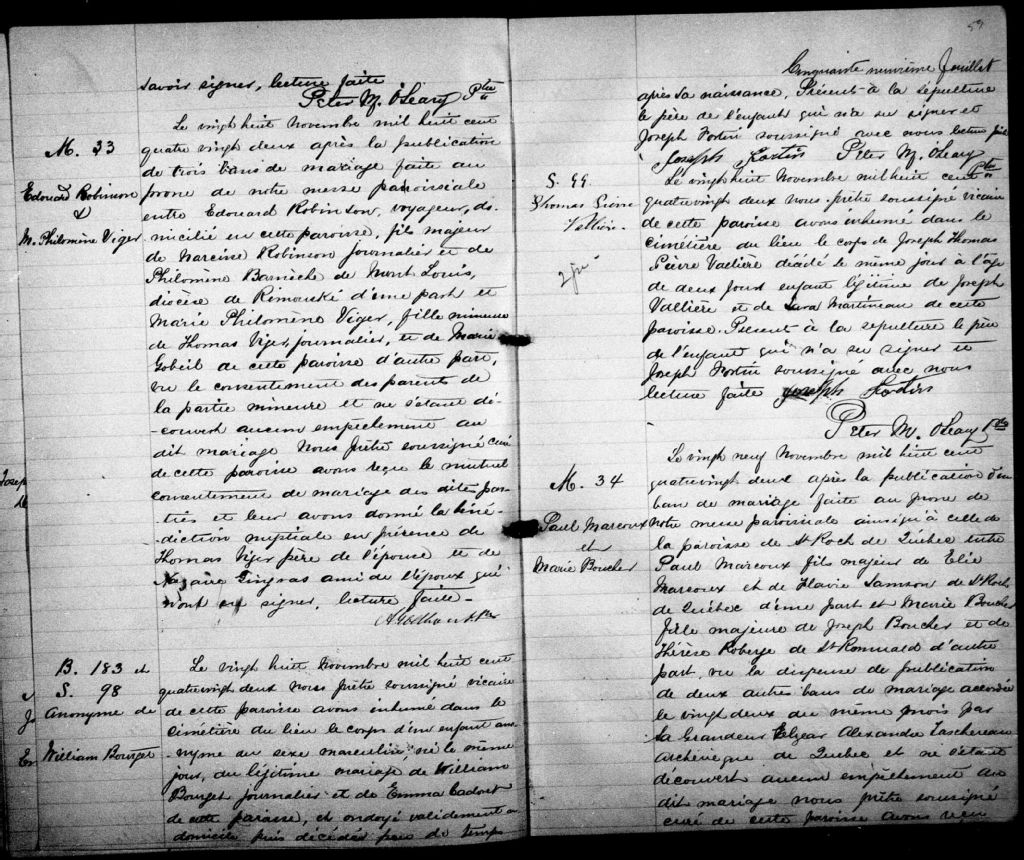 savoir signer, lecture faite
Peter M. O'Leary Ptre
M. 33
Edouard Robinson
&
M. Philomène Viger
Le vingt huit Novembre mil huit cent
quatre vingt deux après la publication
de trois bans de mariage faite au
prone de notre messe paroissiale
entre Edouard Robinson, voyageur, do-
micilié en cette paroisse, fils majeur
de Narcisse Robinson journalier et de
Philomène de Mont Louis,
diocèse de Rimouski d'une part et
Marie Philomène Viger, fille mineure
de Thomas Viger, journalier, et de Marie
Gobeil de cette paroisse d'autre part,
vu le consentement des parents de
la partie mineure et ne s'étant dé-
-couvert aucun empêchement au
dit mariage Nous prêtre soussigné curé
de cette paroisse avons reçu le mutuel
consentement de mariage des dites par-
-ties et leur avons donné la béné-
-diction nuptiale en présence de
Thomas Viger père de l'épouse et de
Nazaire Gingras ami de l'époux qui
n'ont su signer, lecture faite-
B. 183 et
S. 98
Anonyme de
William Bourget
Le vingt huit Novembre mil huit cent
quatrevingt deux nous prêtre soussigné vicaire
de cette paroisse avons inhumé dans le
cimétière du lieu le corps d'un enfant ano-
-nyme du sexe masculin, né le même
jour, du légitime mariage de William
Bourget journalier et de Emma Cadoret
de cette paroisse, et ondoyé validement à
domicile puis décédé peu de temps
59
Cinquante neuvième feuillet
après sa naissance, Présent à la sépulture
le père de l'enfant qui n'a su signer et
Joseph Fortin soussigné avec nous lecture faite
Joseph Fortin Peter M. O'Leary
Ptre
S. 99.
Thomas Pierre
Vallière.
2 jrs -
Le vingt huit Novembre mil huit cent
quatrevingt deux nous prêtre soussigné vicaire
de cette paroisse avons inhumé dans le
cimétière du lieu le corps de Joseph Thomas
Pierre Vallière décédé le même jour à l'âge
de deux jours enfant légitime de Joseph
Vallière et de Sara Martineau de cette
paroisse. Présent à la sépulture le père
de l'enfant qui n'a su signer et
Joseph Fortin soussigné avec nous
lecture faite Joseph Fortin
Peter M. O'Leary Ptre
M. 34
Paul Marcoux
et
Marie Boucher
Le vingt neuf Novembre mil huit cent
quatrevingt deux après la publication d'un
ban de mariage faite au prone de
notre messe paroissiale ainsi qu'à celle de
la paroisse de St Roch de Québec entre
Paul Marcoux fils majeur de Elie
Marcoux et de Flavie Samson de St Roch
de Québec d'une part et Marie Boucher
fille majeure de Joseph Boucher et de
Thérèse Roberge de St Romuald d'autre
part, vu la dispense de publication
de deux autres bans de mariage accordée
le vingt deux du même mois par
Sa Grandeur Elzéar Alexandre Taschereau
Archevêque de Québec et ne s'étant
découvert aucun empêchement au
dit mariage nous prêtre soussigné
curé de cette paroisse avons reçu